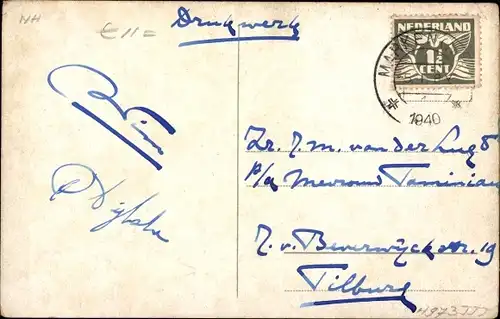 NH
€ 11=
Drukwerk
NEDERLAND
1½
CENT
1940
Wim
Zr. J. M. van der Lugt
p/a Mevrouw Taminiau
J. v. Beverwijckstr. 19
Tilburg